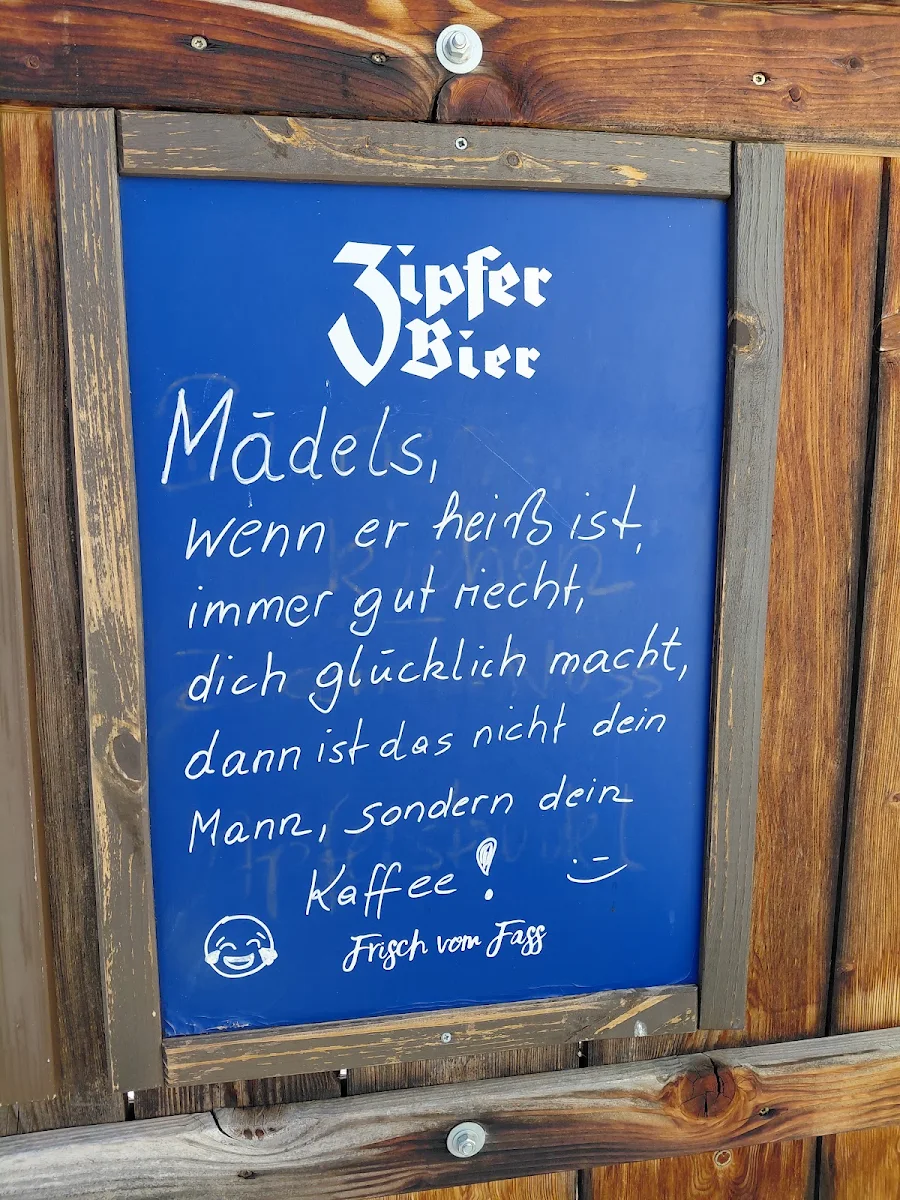 Zipfer
Bier
Mādels,
wenn er heiß ist,
immer gut riecht,
dich glūcklich macht,
dann ist das nicht dein
Mann, sondern dein
Kaffee!
Frisch vom Fass